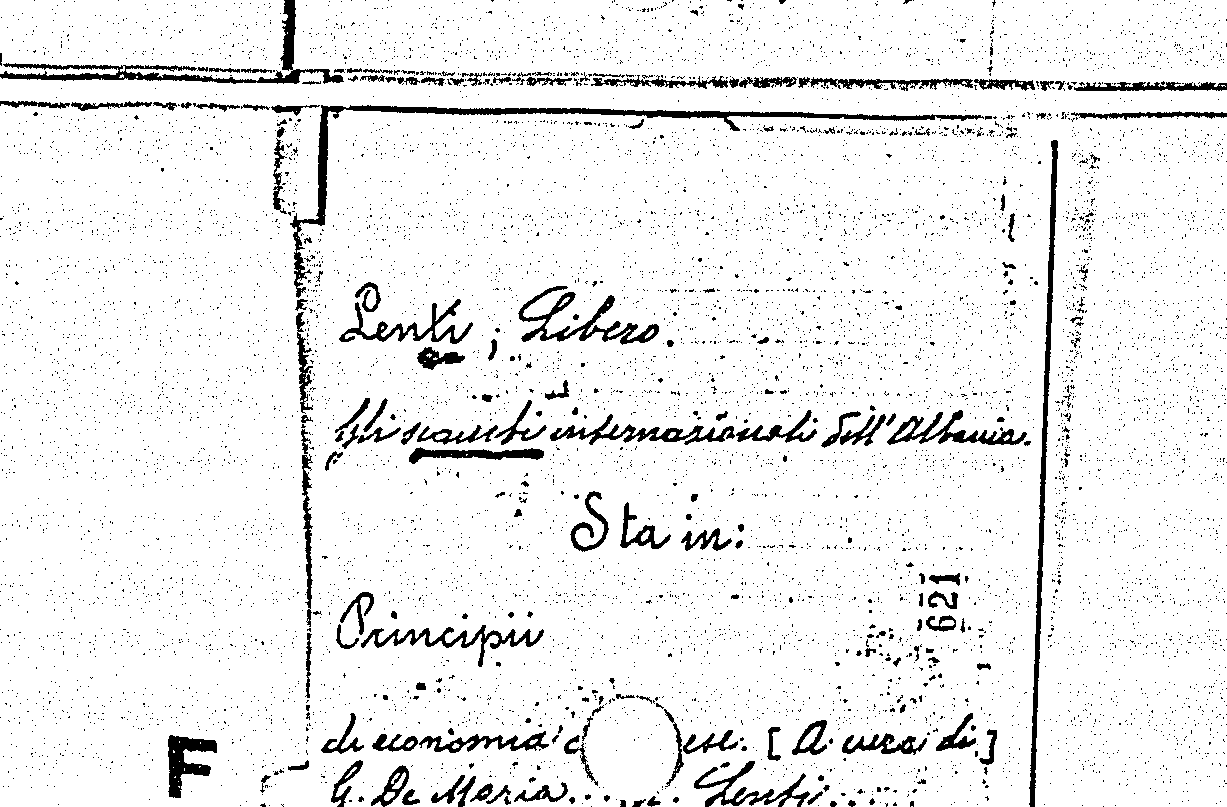 Lenti, Libero.
Gli scambi internazionali dell'Albania.
Sta in:
621
Principii
di economia ese. [A cura di]
F
G. De Maria... Lenti...